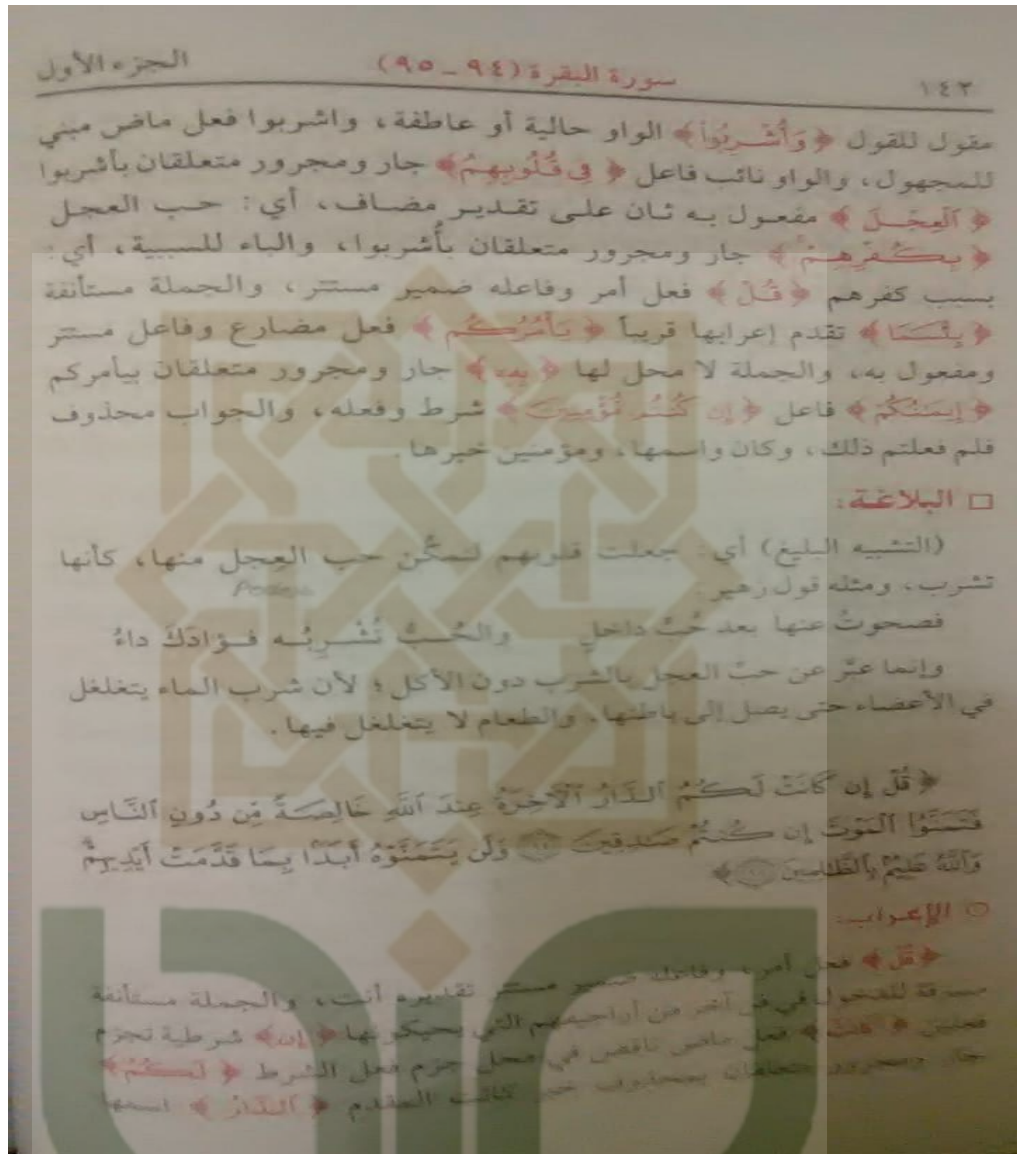 ١٤٢ سورة البقرة (٩٤ _ ٩٥) الجزء الأول
مقول للقول ﴿وَأُشْرِبُوا﴾ الواو حالية أو عاطفة، واشربوا فعل ماض مبني
للمجهول، والواو نائب فاعل ﴿فِى قُلُوبِهِمُ﴾ جار ومجرور متعلقان بأشربوا
﴿ٱلْعِجْلَ﴾ مفعول به ثان على تقدير مضاف، أي: حب العجل
﴿بِكُفْرِهِمْ﴾ جار ومجرور متعلقان بأُشربوا، والباء للسببية، أي:
بسبب كفرهم ﴿قُلْ﴾ فعل أمر وفاعله ضمير مستتر، والجملة مستأنفة
﴿بِئْسَمَا﴾ تقدم إعرابها قريباً ﴿يَأْمُرُكُم﴾ فعل مضارع وفاعل مستتر
ومفعول به، والجملة لا محل لها ﴿بِهِۦ﴾ جار ومجرور متعلقان بيأمركم
﴿إِيمَٰنُكُمْ﴾ فاعل ﴿إِن كُنتُم مُّؤْمِنِينَ﴾ شرط وفعله، والجواب محذوف
فلم فعلتم ذلك، وكان واسمها، ومؤمنين خبرها.
□ البلاغة:
(التشبيه البليغ) أي: جعلت قلوبهم لتمكّن حب العجل منها، كأنها
تشرب، ومثله قول زهير:
فصحوتُ عنها بعد حُبّ داخلٍ والحُبُّ تُشْرِبُه فؤادَكَ داءُ
وإنما عبّر عن حبّ العجل بالشرب دون الأكل؛ لأن شرب الماء يتغلغل
في الأعضاء حتى يصل إلى باطنها، والطعام لا يتغلغل فيها.
﴿قُلْ إِن كَانَتْ لَكُمُ ٱلدَّارُ ٱلْأَخِرَةُ عِندَ ٱللَّهِ خَالِصَةً مِّن دُونِ ٱلنَّاسِ
فَتَمَنَّوُا ٱلْمَوْتَ إِن كُنتُمْ صَٰدِقِينَ وَلَن يَتَمَنَّوْهُ أَبَدًۢا بِمَا قَدَّمَتْ أَيْدِيهِمْ
وَٱللَّهُ عَلِيمٌۢ بِٱلظَّٰلِمِينَ﴾
○ الإعراب:
﴿قُلْ﴾ فعل أمر، وفاعله ضمير مستتر تقديره أنت، والجملة مستأنفة
للدخول في فن آخر من أراجيفهم التي يحيكونها ﴿إِن﴾ شرطية تجزم
فعلين ﴿كَانَتْ﴾ فعل ماض ناقص في محل جزم فعل الشرط ﴿لَكُمُ﴾
جار ومجرور متعلقان بمحذوف خبر كانت المقدم ﴿ٱلدَّارُ﴾ اسمها